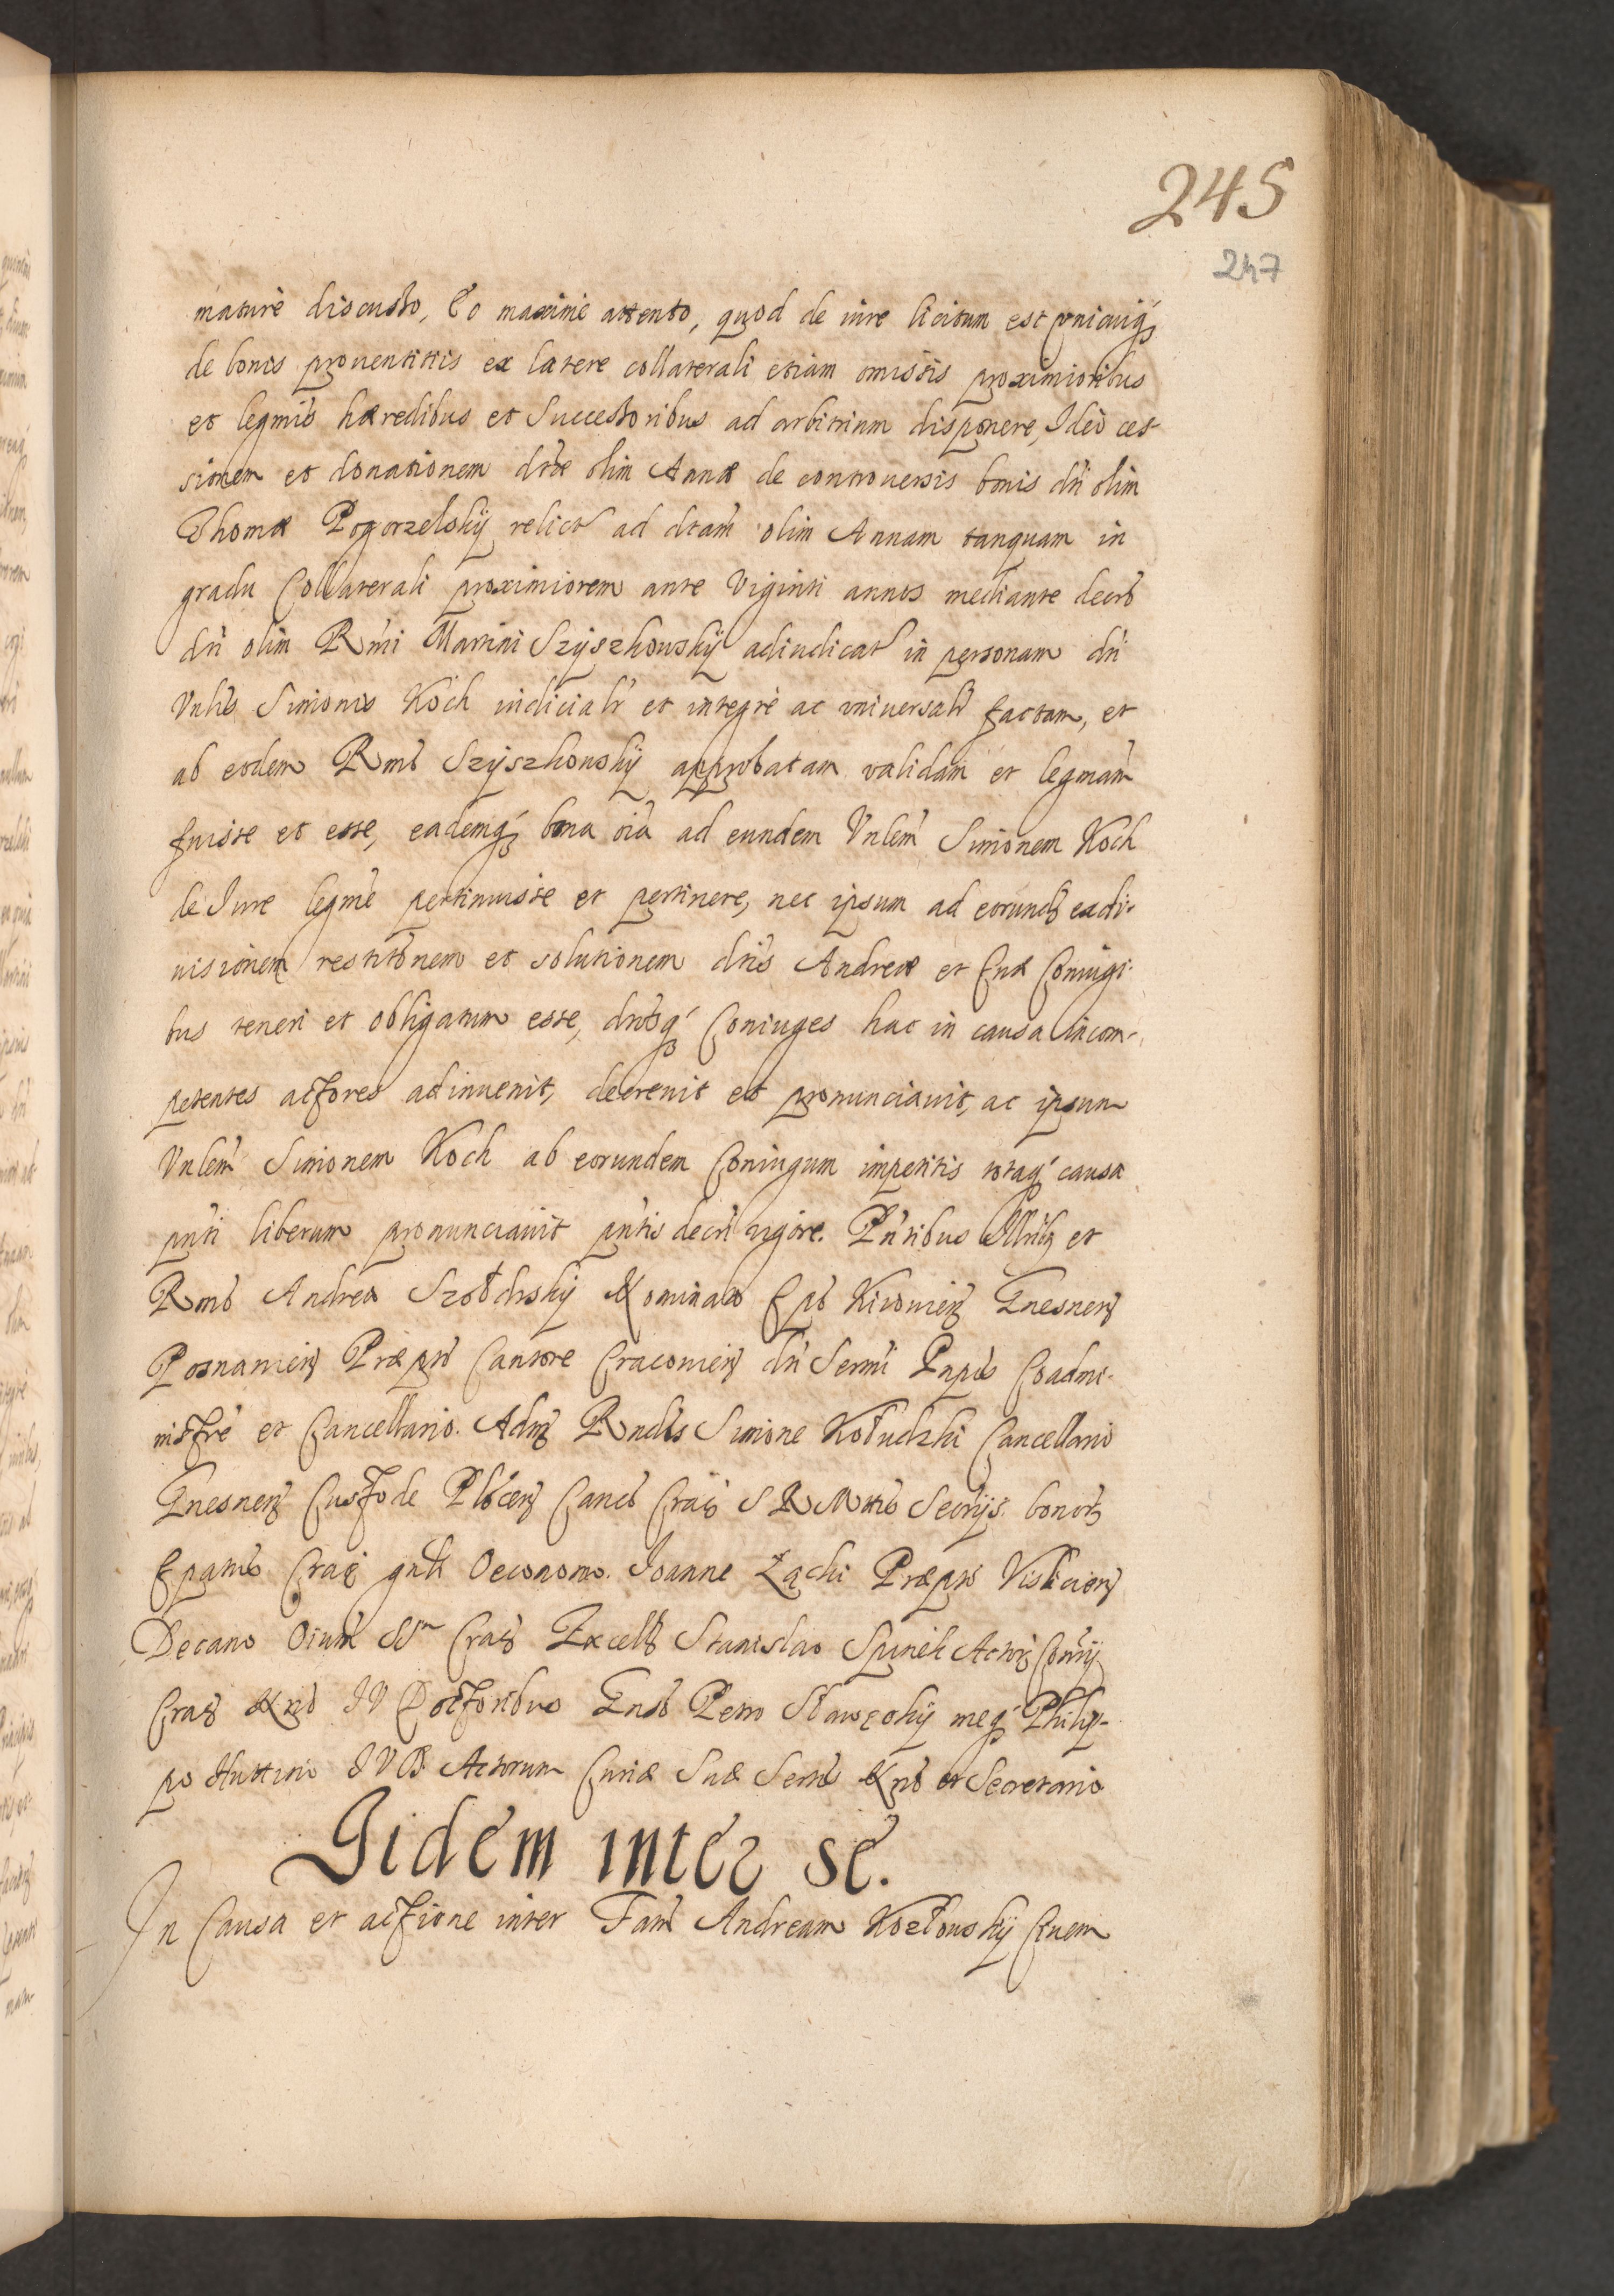 245
247
maturè discusso, Eo maximè attento, quod de iure licitum est unicuiq́
de bonis prouentitiis ex latere collaterali etiam omissis proximioribus
et legmis hæredibus et Successoribus ad arbitrium disponere, Ideò ces-
sionem et donationem dctæ olim Annæ de controuersis bonis dti olim
Thomæ Pogorzelskij relict ad dtam olim Annam tanquam in
gradu Collaterali proximiorem ante Viginti annos mediante decrō
dti olim Rmi Martini Szyszkouskij adiudicat in personam dti
Vnlis Simonis Koch iudicialr et integrè ac vniuersalr factam, et
ab eodem Rmo Szyszkouskij approbatam validam et legmam
fuisse et esse, eademq́ bona oia ad eundem Vnlem Simonem Koch
de Iure legmè pertinuisse et pertinere, nec ipsum ad eorund exdi-
uisionem restitōnem et solutionem dtis Andreæ et Euæ Coniugi-
bus teneri et obligatum esse, dictosq́ Coniuges hac in causa incom-
petentes actores adinuenit, decreuit et pronunciauit, ac ipsum
Vnlem Simonem Koch ab eorundem Coniugum impetitis totaq́ causa
pnti liberum pronunciauit pntis decri vigore. Pntibus Illri et
Rmo Andrea Szołdrskij Nominato Epo Kiiouien Gnesnen
Posnanien Præpto Cantore Cracouien dti Sermi Pnpis Coadmi-
nistre et Cancellario. Adm Rndis Simone Kołudzki Cancellario
Gnesnen Custode Płocen Canco Crac S R Mttis Secrijs. bonor
Epatus Crac gnli Oeconomo. Ioanne Łącki Præpto Vislicien
Decano Oium SSm Crac Excell Stanislao Spinek Actor Consij
Crac Nrō I V Doctoribus Gnso Petro Sławęckij meq́ Philip-
po Huttini I V D Actorum Curiæ Suæ Sertis Nrō et Secretario
Iidem inter se.
In Causa et actione inter Fam Andream Kozłouskij Ciuem